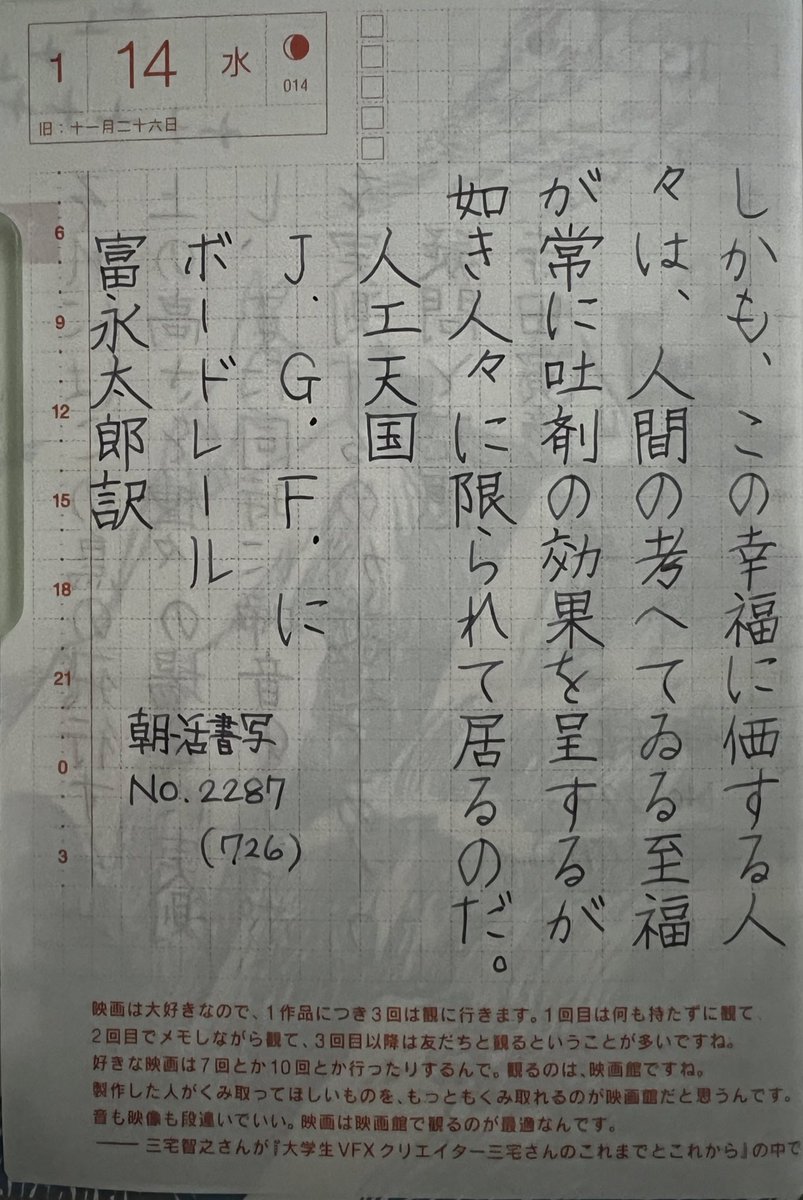 1 14 水
014
旧：十一月二十六日
しかも、この幸福に価する人
々は、人間の考へてゐる至福
が常に吐剤の効果を呈するが
如き人々に限られて居るのだ。
人工天国
J．G．F．に
ボードレール
富永太郎訳
6
9
12
15
18
21
0
3
朝活書写
No.2287
(726)
映画は大好きなので、1作品につき3回は観に行きます。1回目は何も持たずに観て、
2回目でメモしながら観て、3回目以降は友だちと観るということが多いですね。
好きな映画は7回とか10回とか行ったりするんで。観るのは、映画館ですね。
製作した人がくみ取ってほしいものを、もっともくみ取れるのが映画館だと思うんです。
音も映像も段違いでいい。映画は映画館で観るのが最適なんです。
―― 三宅智之さんが『大学生VFXクリエイター三宅さんのこれまでとこれから』の中で